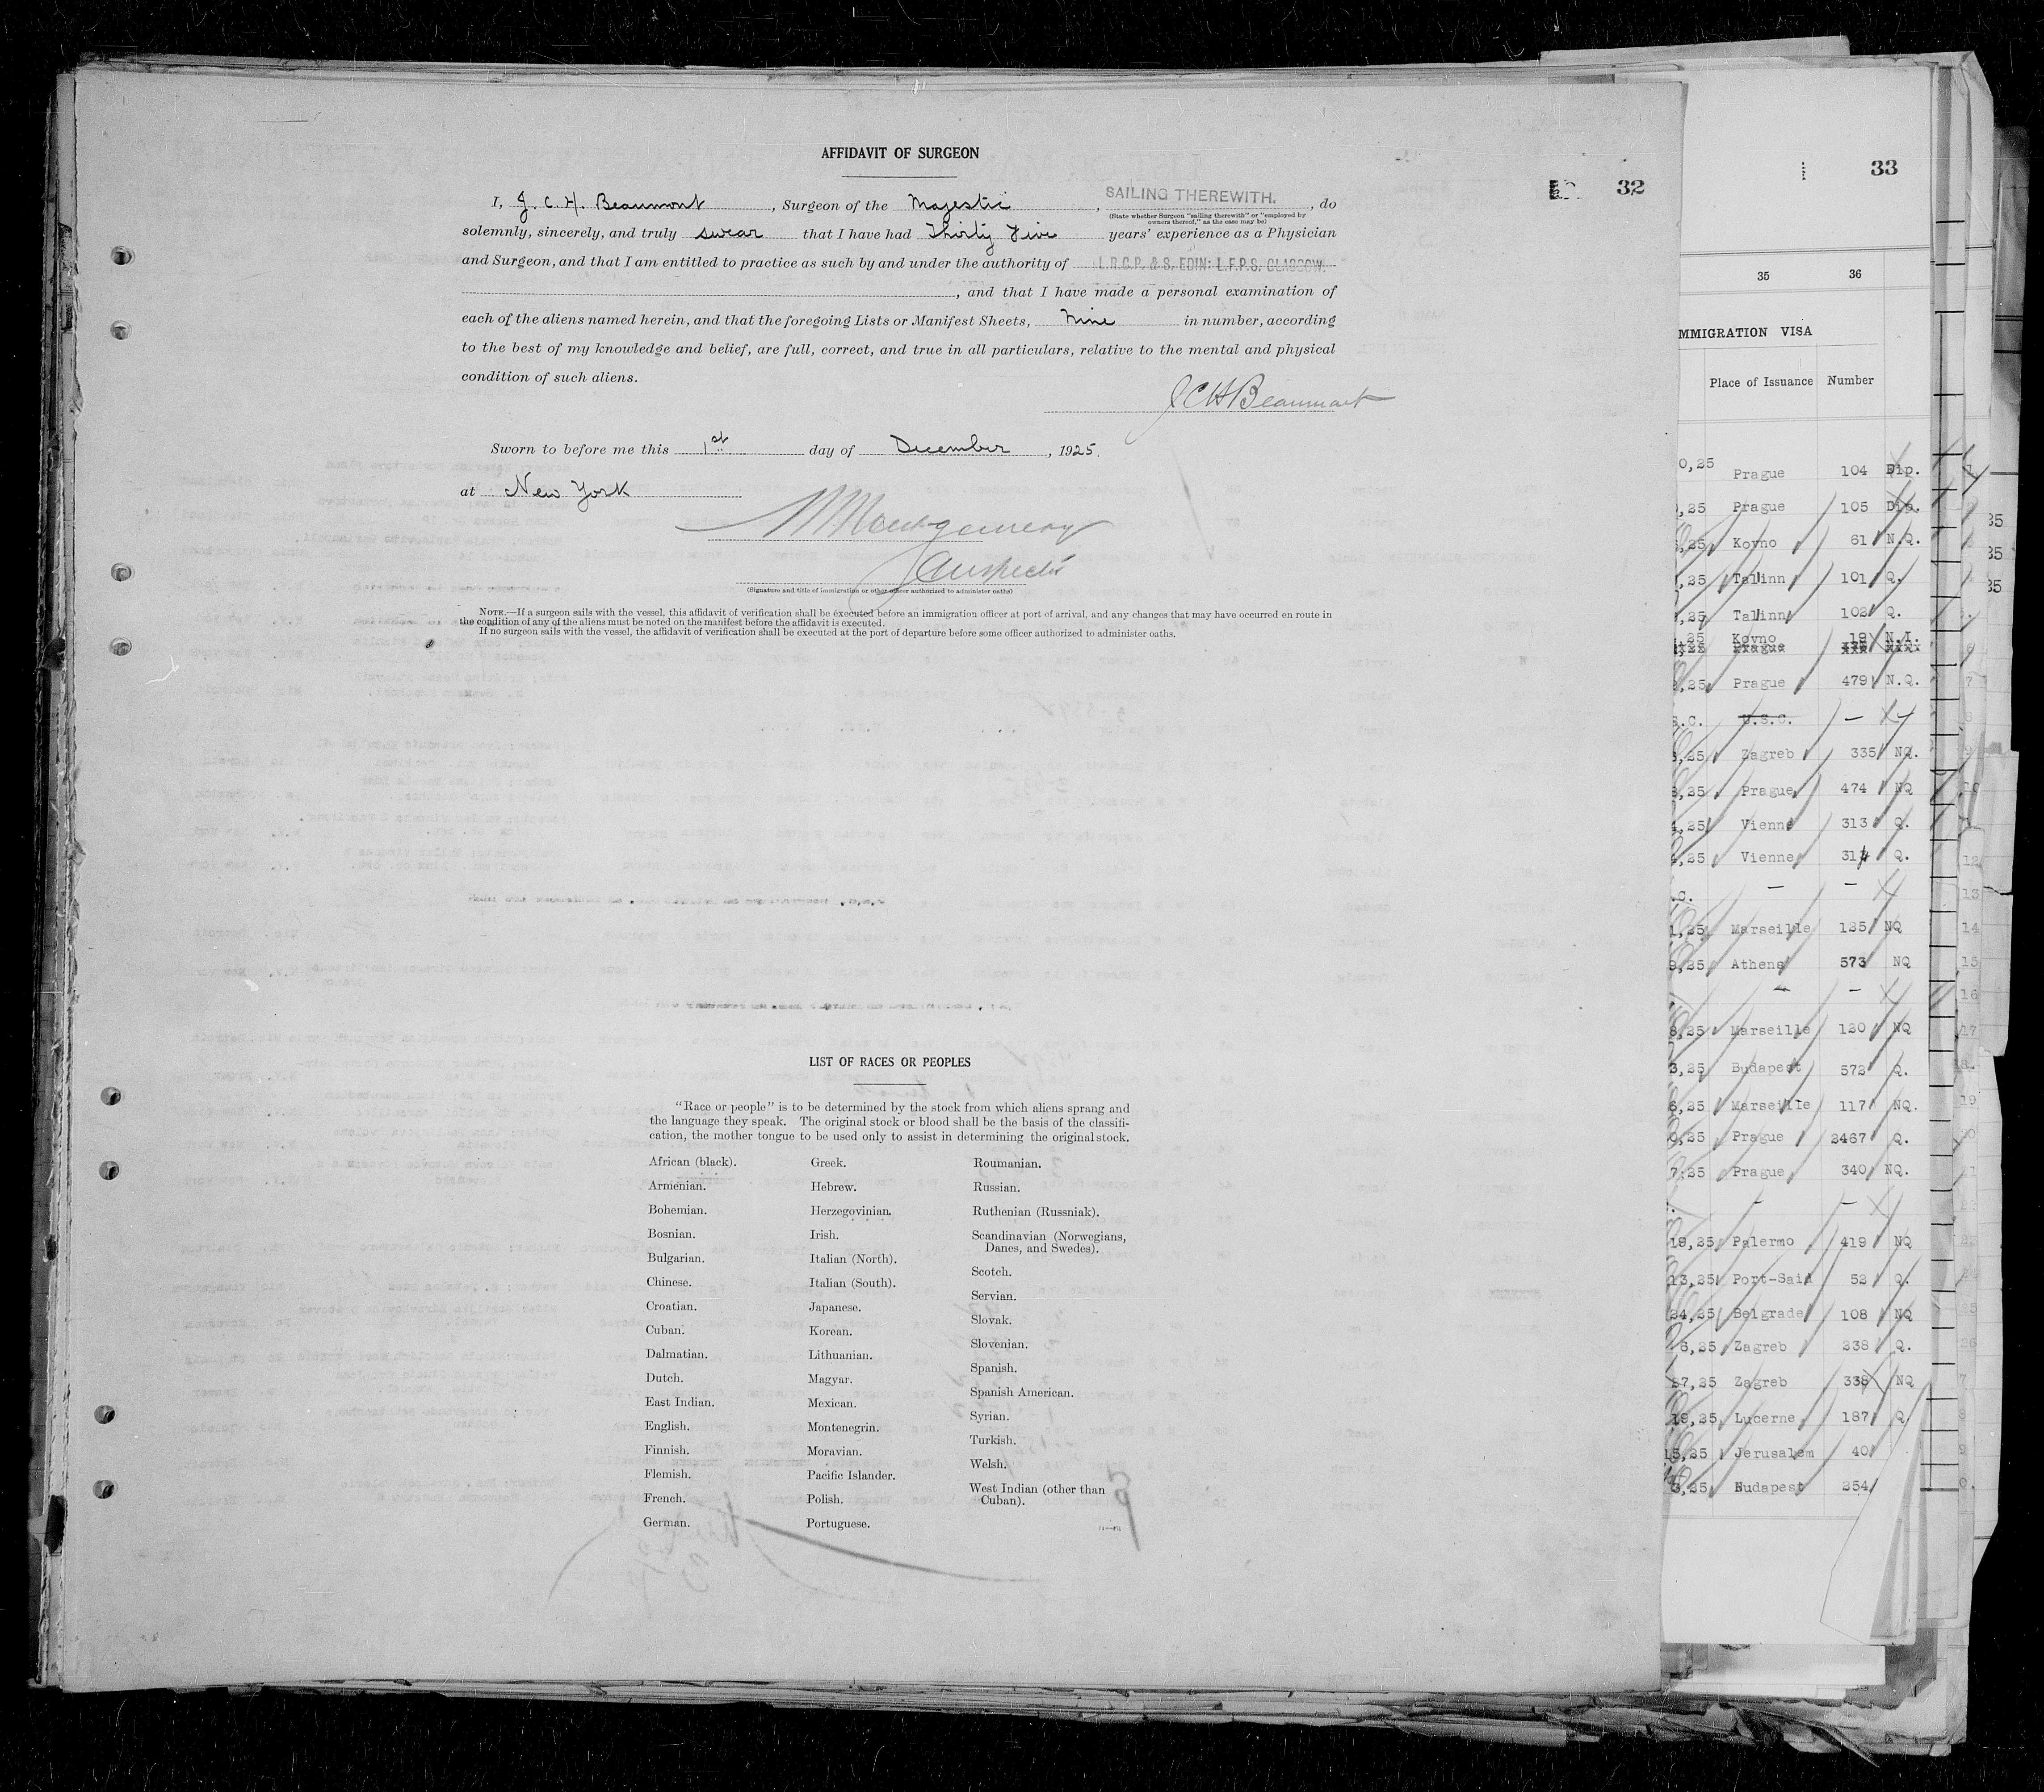 AFFIDAVIT OF SURGEON
32
I, J. C. H. Beaumont, Surgeon of the Majestic, SAILING THEREWITH., do
(State whether Surgeon "sailing therewith" or "employed by
owners thereof," as the case may be)
solemnly, sincerely, and truly swear that I have had Thirty Five years' experience as a Physician
and Surgeon, and that I am entitled to practice as such by and under the authority of L.R.C.P. & S. EDIN: L.F.P.S. GLASGOW.
, and that I have made a personal examination of
each of the aliens named herein, and that the foregoing Lists or Manifest Sheets, Nine in number, according
to the best of my knowledge and belief, are full, correct, and true in all particulars, relative to the mental and physical
condition of such aliens.
JCHBeaumont
Sworn to before me this 1st day of December, 1925.
at New York
Montgomery
Inspector
(Signature and title of immigration or other officer authorized to administer oaths)
NOTE.—If a surgeon sails with the vessel, this affidavit of verification shall be executed before an immigration officer at port of arrival, and any changes that may have occurred en route in
the condition of any of the aliens must be noted on the manifest before the affidavit is executed.
If no surgeon sails with the vessel, the affidavit of verification shall be executed at the port of departure before some officer authorized to administer oaths.
LIST OF RACES OR PEOPLES
"Race or people" is to be determined by the stock from which aliens sprang and
the language they speak. The original stock or blood shall be the basis of the classifi-
cation, the mother tongue to be used only to assist in determining the original stock.
African (black).
Armenian.
Bohemian.
Bosnian.
Bulgarian.
Chinese.
Croatian.
Cuban.
Dalmatian.
Dutch.
East Indian.
English.
Finnish.
Flemish.
French.
German.
Greek.
Hebrew.
Herzegovinian.
Irish.
Italian (North).
Italian (South).
Japanese.
Korean.
Lithuanian.
Magyar.
Mexican.
Montenegrin.
Moravian.
Pacific Islander.
Polish.
Portuguese.
Roumanian.
Russian.
Ruthenian (Russniak).
Scandinavian (Norwegians,
Danes, and Swedes).
Scotch.
Servian.
Slovak.
Slovenian.
Spanish.
Spanish American.
Syrian.
Turkish.
Welsh.
West Indian (other than
Cuban).
33
35 36
MMIGRATION VISA
Place of Issuance Number
0,25 Prague 104 Dip.
,25 Prague 105 Dip.
,25 Kovno 61 N.Q.
,25 Talinn 101 Q.
,25 Talinn 102 Q.
,25 Kovno 19 N.I.
Prague
,25 Prague 479 N.Q.
S.C. U.S.C. —
,25 Zagreb 335 NQ.
,25 Prague 474 NQ
,25 Vienne 313 Q.
,25 Vienne 314 Q.
.C. — —
1,25 Marseille 125 NQ
9,25 Athens 573 NQ
— —
8,25 Marseille 120 NQ
3,25 Budapest 572 Q.
6,25 Marseille 117 NQ.
0,25 Prague 2467 Q.
7,25 Prague 340 NQ.
- —
19,25 Palermo 419 NQ
13,25 Port-Said 52 Q.
24,25 Belgrade 108 NQ
6,25 Zagreb 238 Q.
27,25 Zagreb 338 NQ
19,25 Lucerne 187 Q.
15,25 Jerusalem 40
3,25 Budapest 254